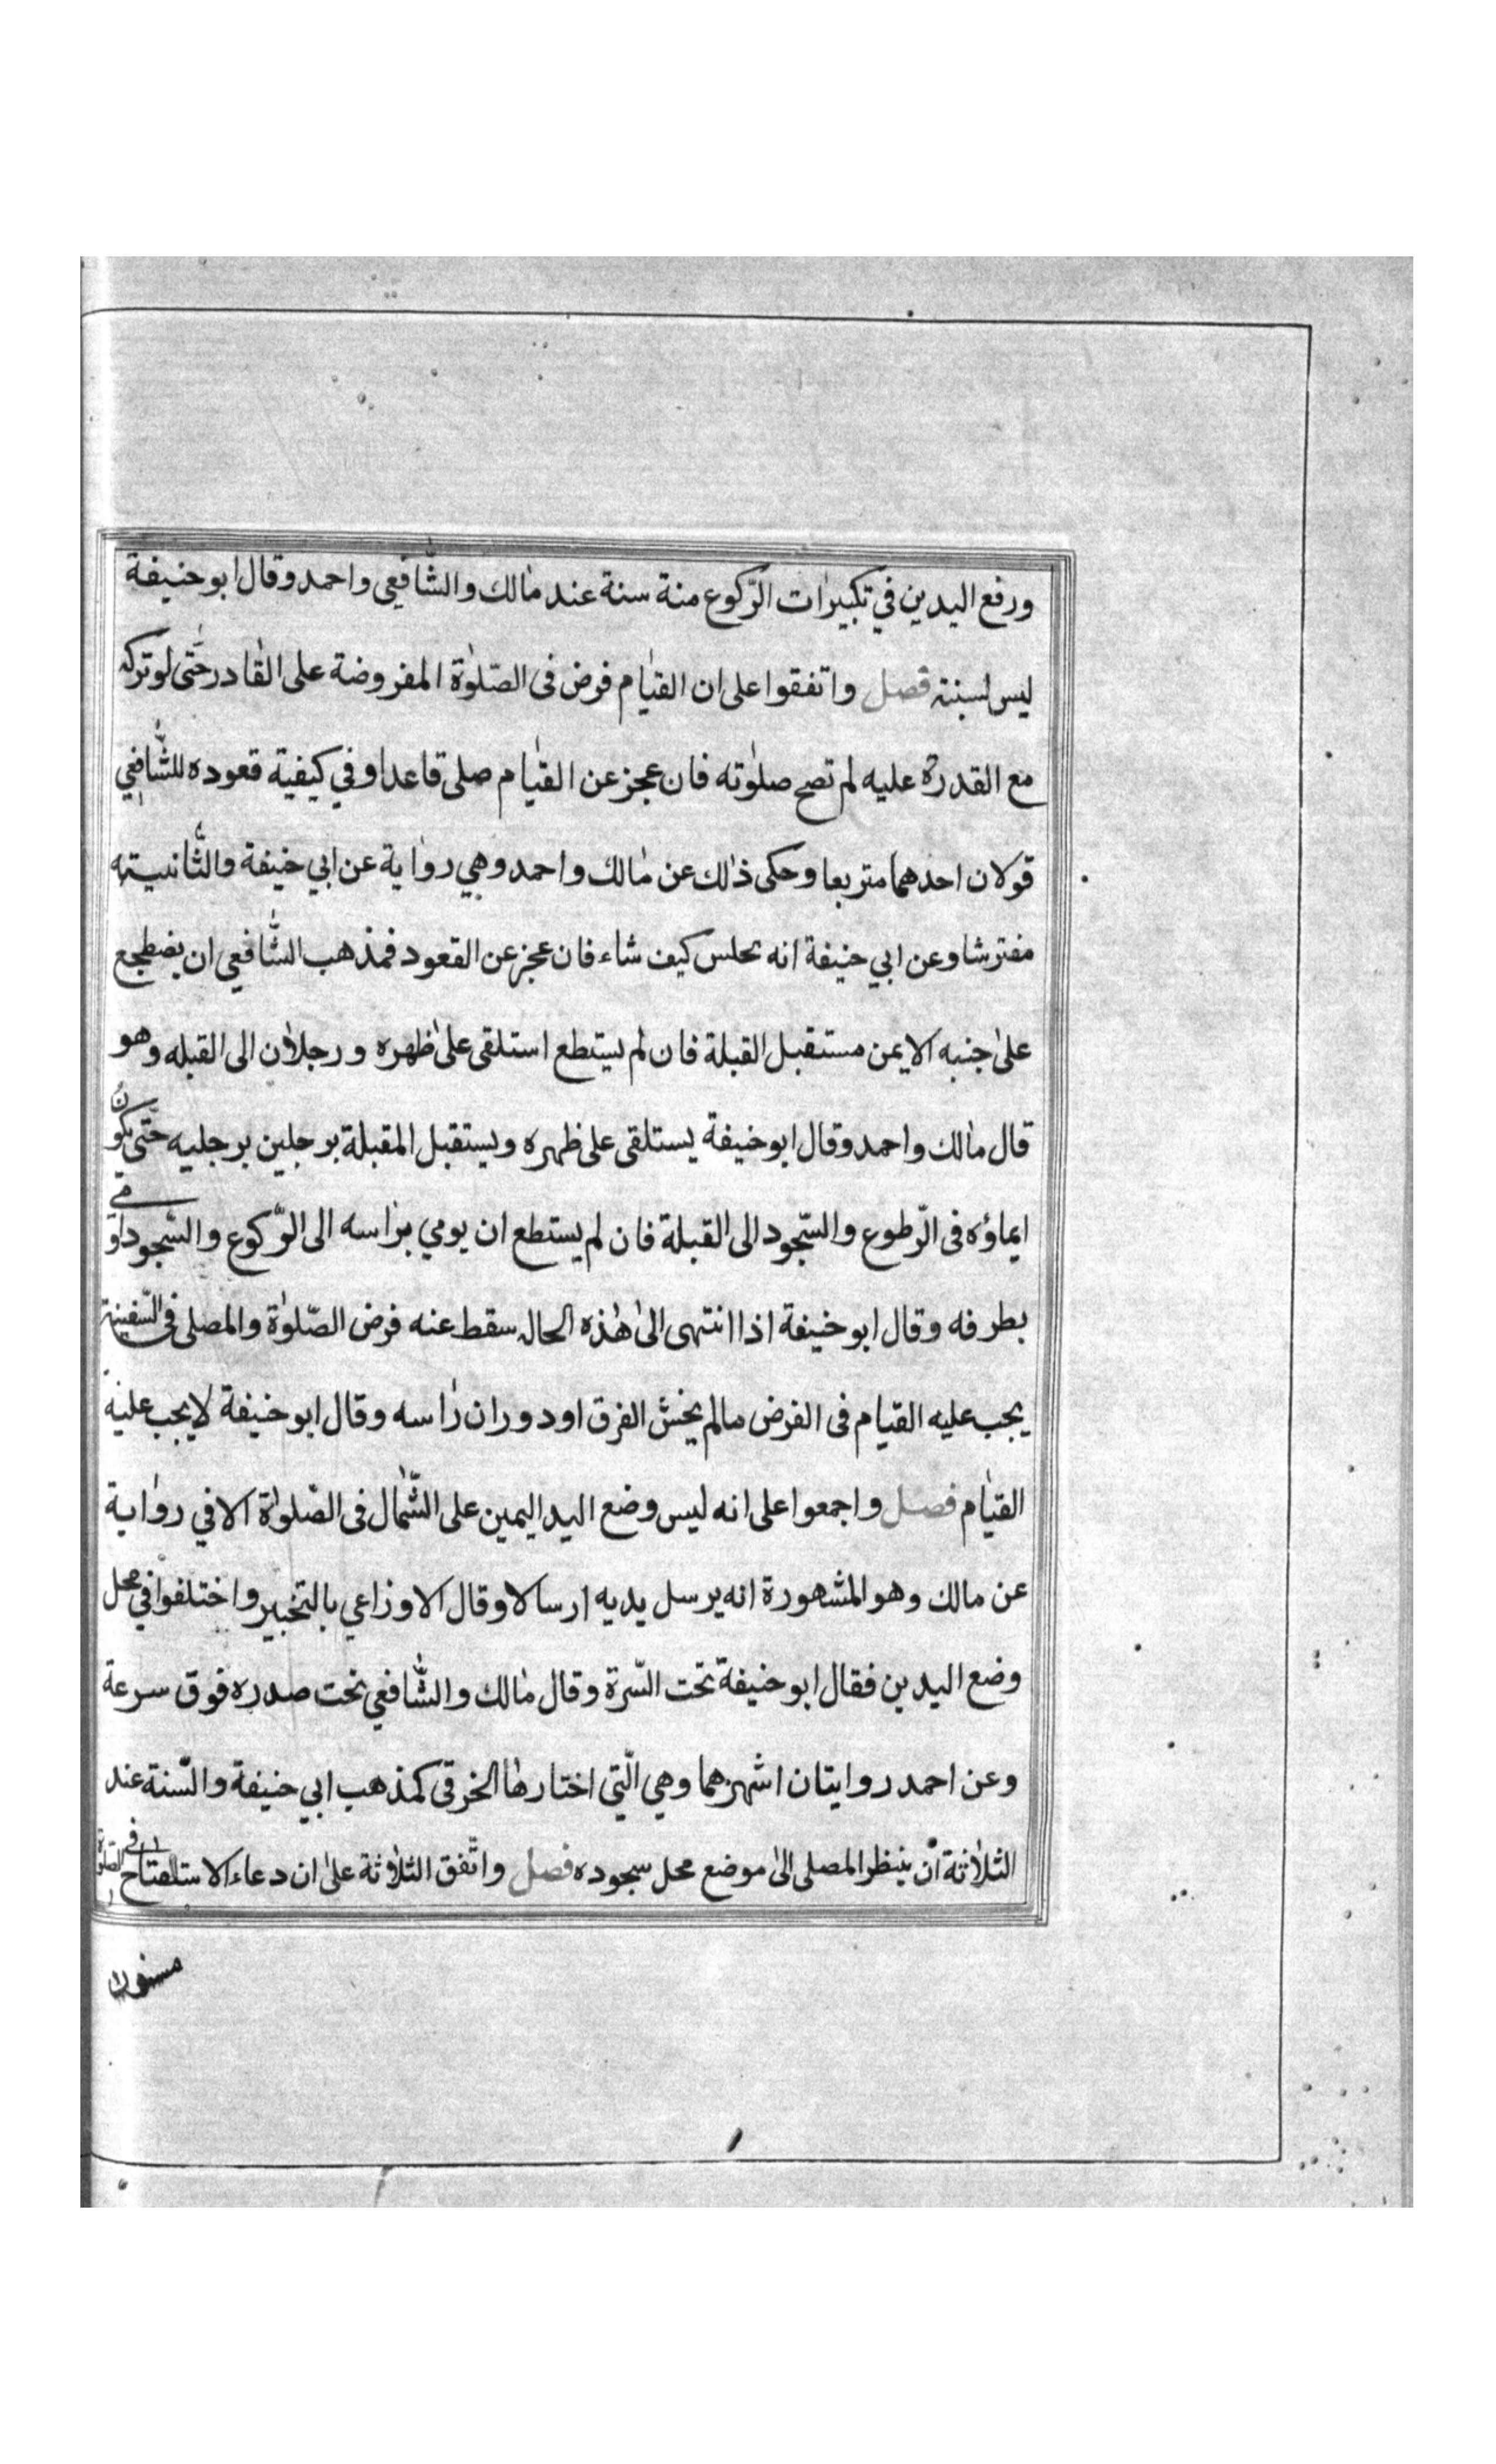 ورفع اليدين في تكبيرات الرّكوع منة سنة عند مالك والشّافعي واحمد وقال ابو حنيفة
ليس لسنته فصل واتفقوا على ان القيام فرض فى الصّلوٰة المفروضة على القادر حتّى لو تركه
مع القدرة عليه لم تصح صلوٰته فان عجز عن القيام صلى قاعدا وفي كيفية قعوده للشّافعي
قولان احدهما متربعا وحكى ذٰلك عن مالك واحمد وهي رواية عن ابي حنيفة والثّانيته
مفترشا وعن ابي حنيفة انه يجلس كيف شاء فان عجز عن القعود فمذهب الشّافعي ان يضطجع
علىٰ جنبه الايمن مستقبل القبلة فان لم يستطع استلقى علىٰ ظهره ورجلاٰن الى القبله وهو
قال مالك واحمد وقال ابو حنيفة يستلقى على ظهره ويستقبل المقبلة برجلين برجليه حتّى يكون
ايماؤه فى الرّطوع والسّجود الى القبلة فان لم يستطع ان يومي براسه الى الرّكوع والسّجود اومى
بطرفه وقال ابو حنيفة اذا انتهى الىٰ هٰذه الحاله سقط عنه فرض الصّلوٰة والمصلى فى السّفينة
يجب عليه القيام فى الفرض مالم يخش الفرق او دوران راسه وقال ابو حنيفة لا يجب عليه
القيام فصل واجمعوا على انه ليس وضع اليد اليمين على الشّمال فى الصّلوٰة الا في رواية
عن مالك وهو المشهورة انه يرسل يديه ارسالا وقال الاوزاعي بالتخيير واختلفوا في محل
وضع اليدين فقال ابو حنيفة تحت السّرة وقال مالك والشّافعي تحت صدره فوق سرعة
وعن احمد روايتان اشهرهما وهي الّتي اختارها الخرقى كمذهب ابي حنيفة والسّنة عند
الثلاٰثة ان ينظر المصلى الىٰ موضع محل سجوده فصل واتّفق الثلاٰثة علىٰ ان دعاء الاستلفتاح فى الصّلوٰة
مسنون